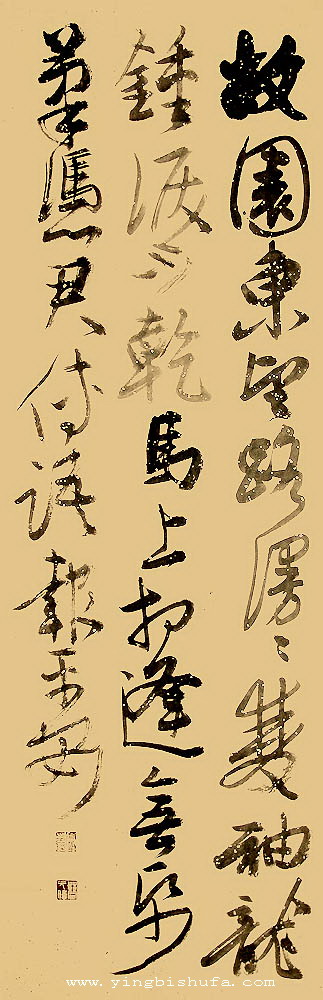 故園東望路漫〻雙袖龍
鍾淚不乾馬上相逢無紙
筆馮君傳語報平安
www.yingbishufa.com